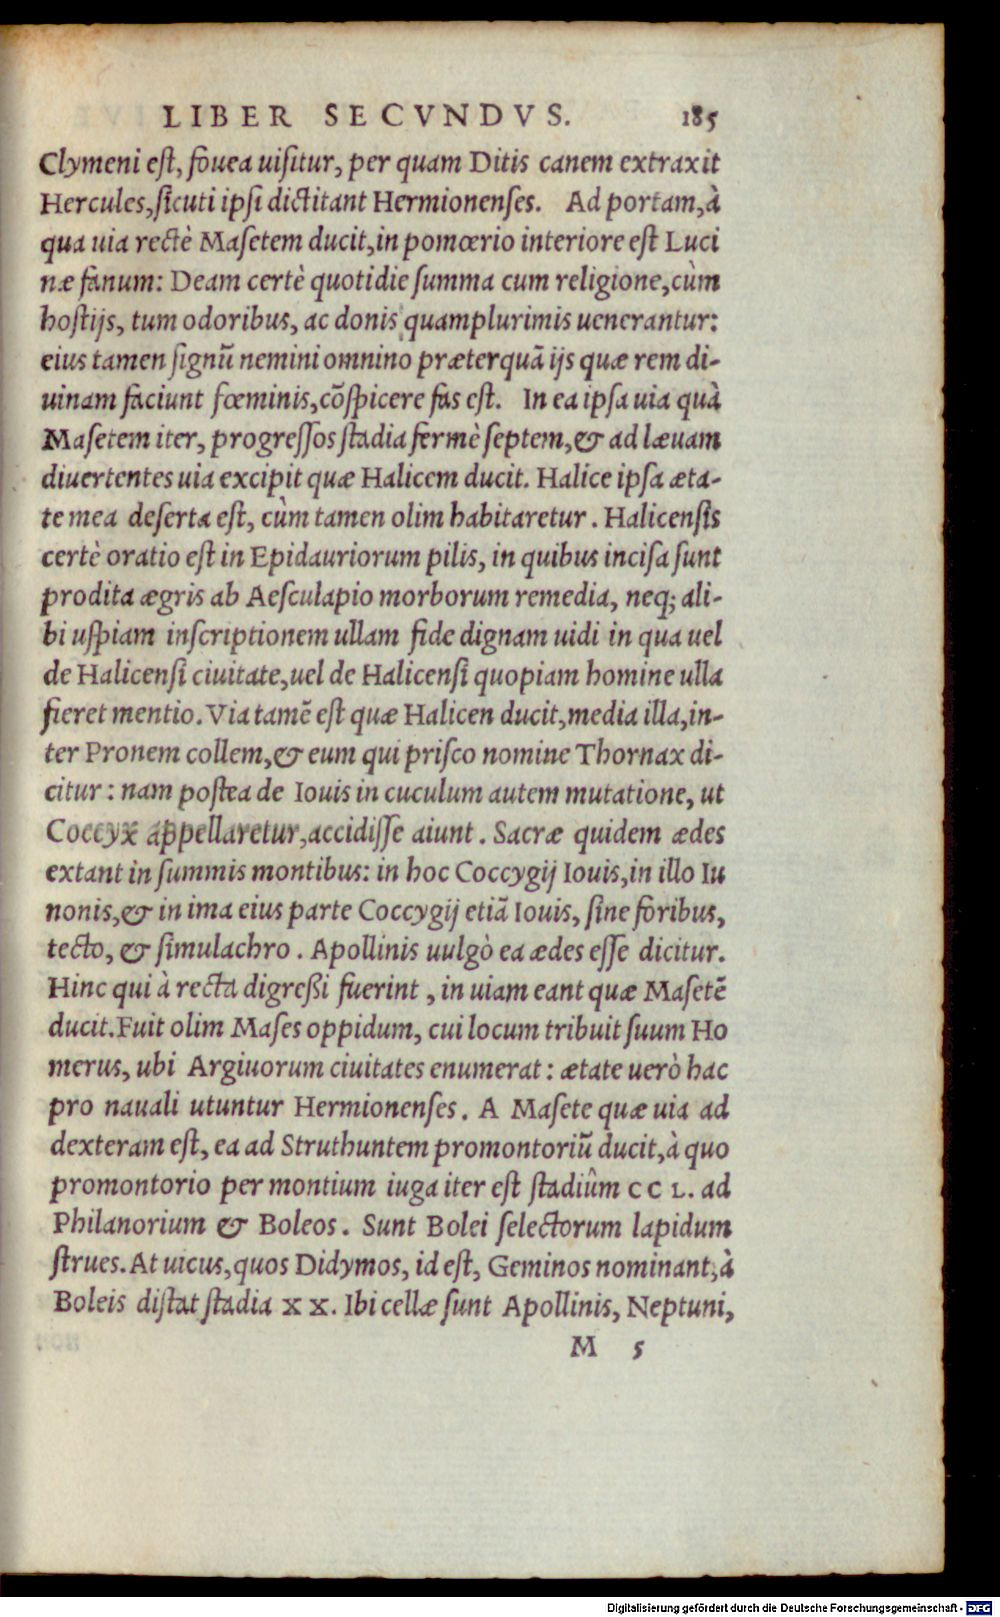 LIBER SECVNDVS. 185
Clymeni est, fouea uisitur, per quam Ditis canem extraxit
Hercules, sicuti ipsi dictitant Hermionenses. Ad portam, à
qua uia rectè Masetem ducit, in pomœrio interiore est Luci
næ fanum: Deam certè quotidie summa cum religione, cùm
hostijs, tum odoribus, ac donis quamplurimis uenerantur:
eius tamen signũ nemini omnino præterquã ijs quæ rem di-
uinam faciunt fœminis, cõspicere fas est. In ea ipsa uia quà
Masetem iter, progressos stadia fermè septem, & ad læuam
diuertentes uia excipit quæ Halicem ducit. Halice ipsa æta-
te mea deserta est, cùm tamen olim habitaretur. Halicensis
certè oratio est in Epidauriorum pilis, in quibus incisa sunt
prodita ægris ab Aesculapio morborum remedia, neq; ali-
bi uspiam inscriptionem ullam fide dignam uidi in qua uel
de Halicensi ciuitate, uel de Halicensi quopiam homine ulla
fieret mentio. Via tamẽ est quæ Halicen ducit, media illa, in-
ter Pronem collem, & eum qui prisco nomine Thornax di-
citur: nam postea de Iouis in cuculum autem mutatione, ut
Coccyx appellaretur, accidisse aiunt. Sacræ quidem ædes
extant in summis montibus: in hoc Coccygij Iouis, in illo Iu
nonis, & in ima eius parte Coccygij etiã Iouis, sine foribus,
tecto, & simulachro. Apollinis uulgò ea ædes esse dicitur.
Hinc qui à recta digreßi fuerint, in uiam eant quæ Masetẽ
ducit. Fuit olim Mases oppidum, cui locum tribuit suum Ho
merus, ubi Argiuorum ciuitates enumerat: ætate uerò hac
pro nauali utuntur Hermionenses. A Masete quæ uia ad
dexteram est, ea ad Struthuntem promontoriũ ducit, à quo
promontorio per montium iuga iter est stadiûm CC L. ad
Philanorium & Boleos. Sunt Bolei selectorum lapidum
strues. At uicus, quos Didymos, id est, Geminos nominant, à
Boleis distat stadia XX. Ibi cellæ sunt Apollinis, Neptuni,
M 5
Digitalisierung gefördert durch die Deutsche Forschungsgemeinschaft - DFG